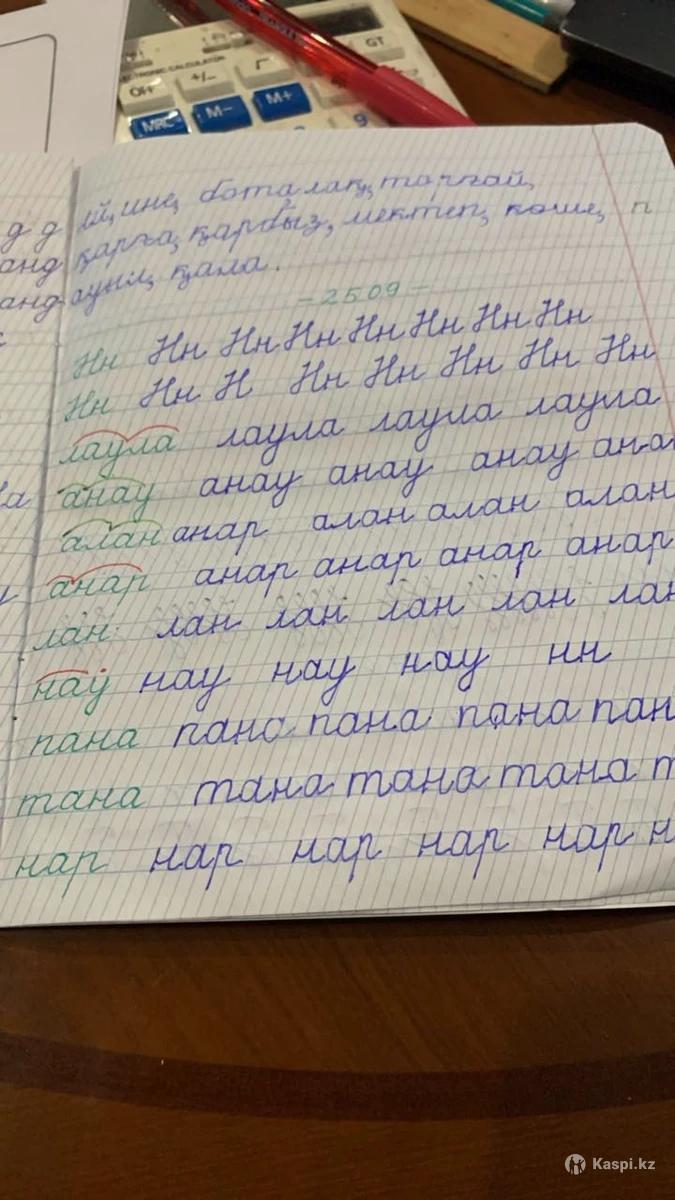 GT
ELECTRONIC CALCULATOR
OFF +/- Г
MRC M- M+
9
д д
ый, ине, боталақ, торғай,
қарға, қарбыз, мектеп, көше, п
ауыл, қала.
- 2509 -
Нн Нн Нн Нн Нн Нн Нн Нн
Нн Нн Н Нн Нн Нн Нн Нн
лаула лаула лаула лаула
анау анау анау анау ана
алан анар алан алан алан
анар анар анар анар анар
лан лан лан лан лан лан
нау нау нау нау нн
пана пано пана пана пан
тана тана тана тана т
нар нар нар нар нар н
Kaspi.kz